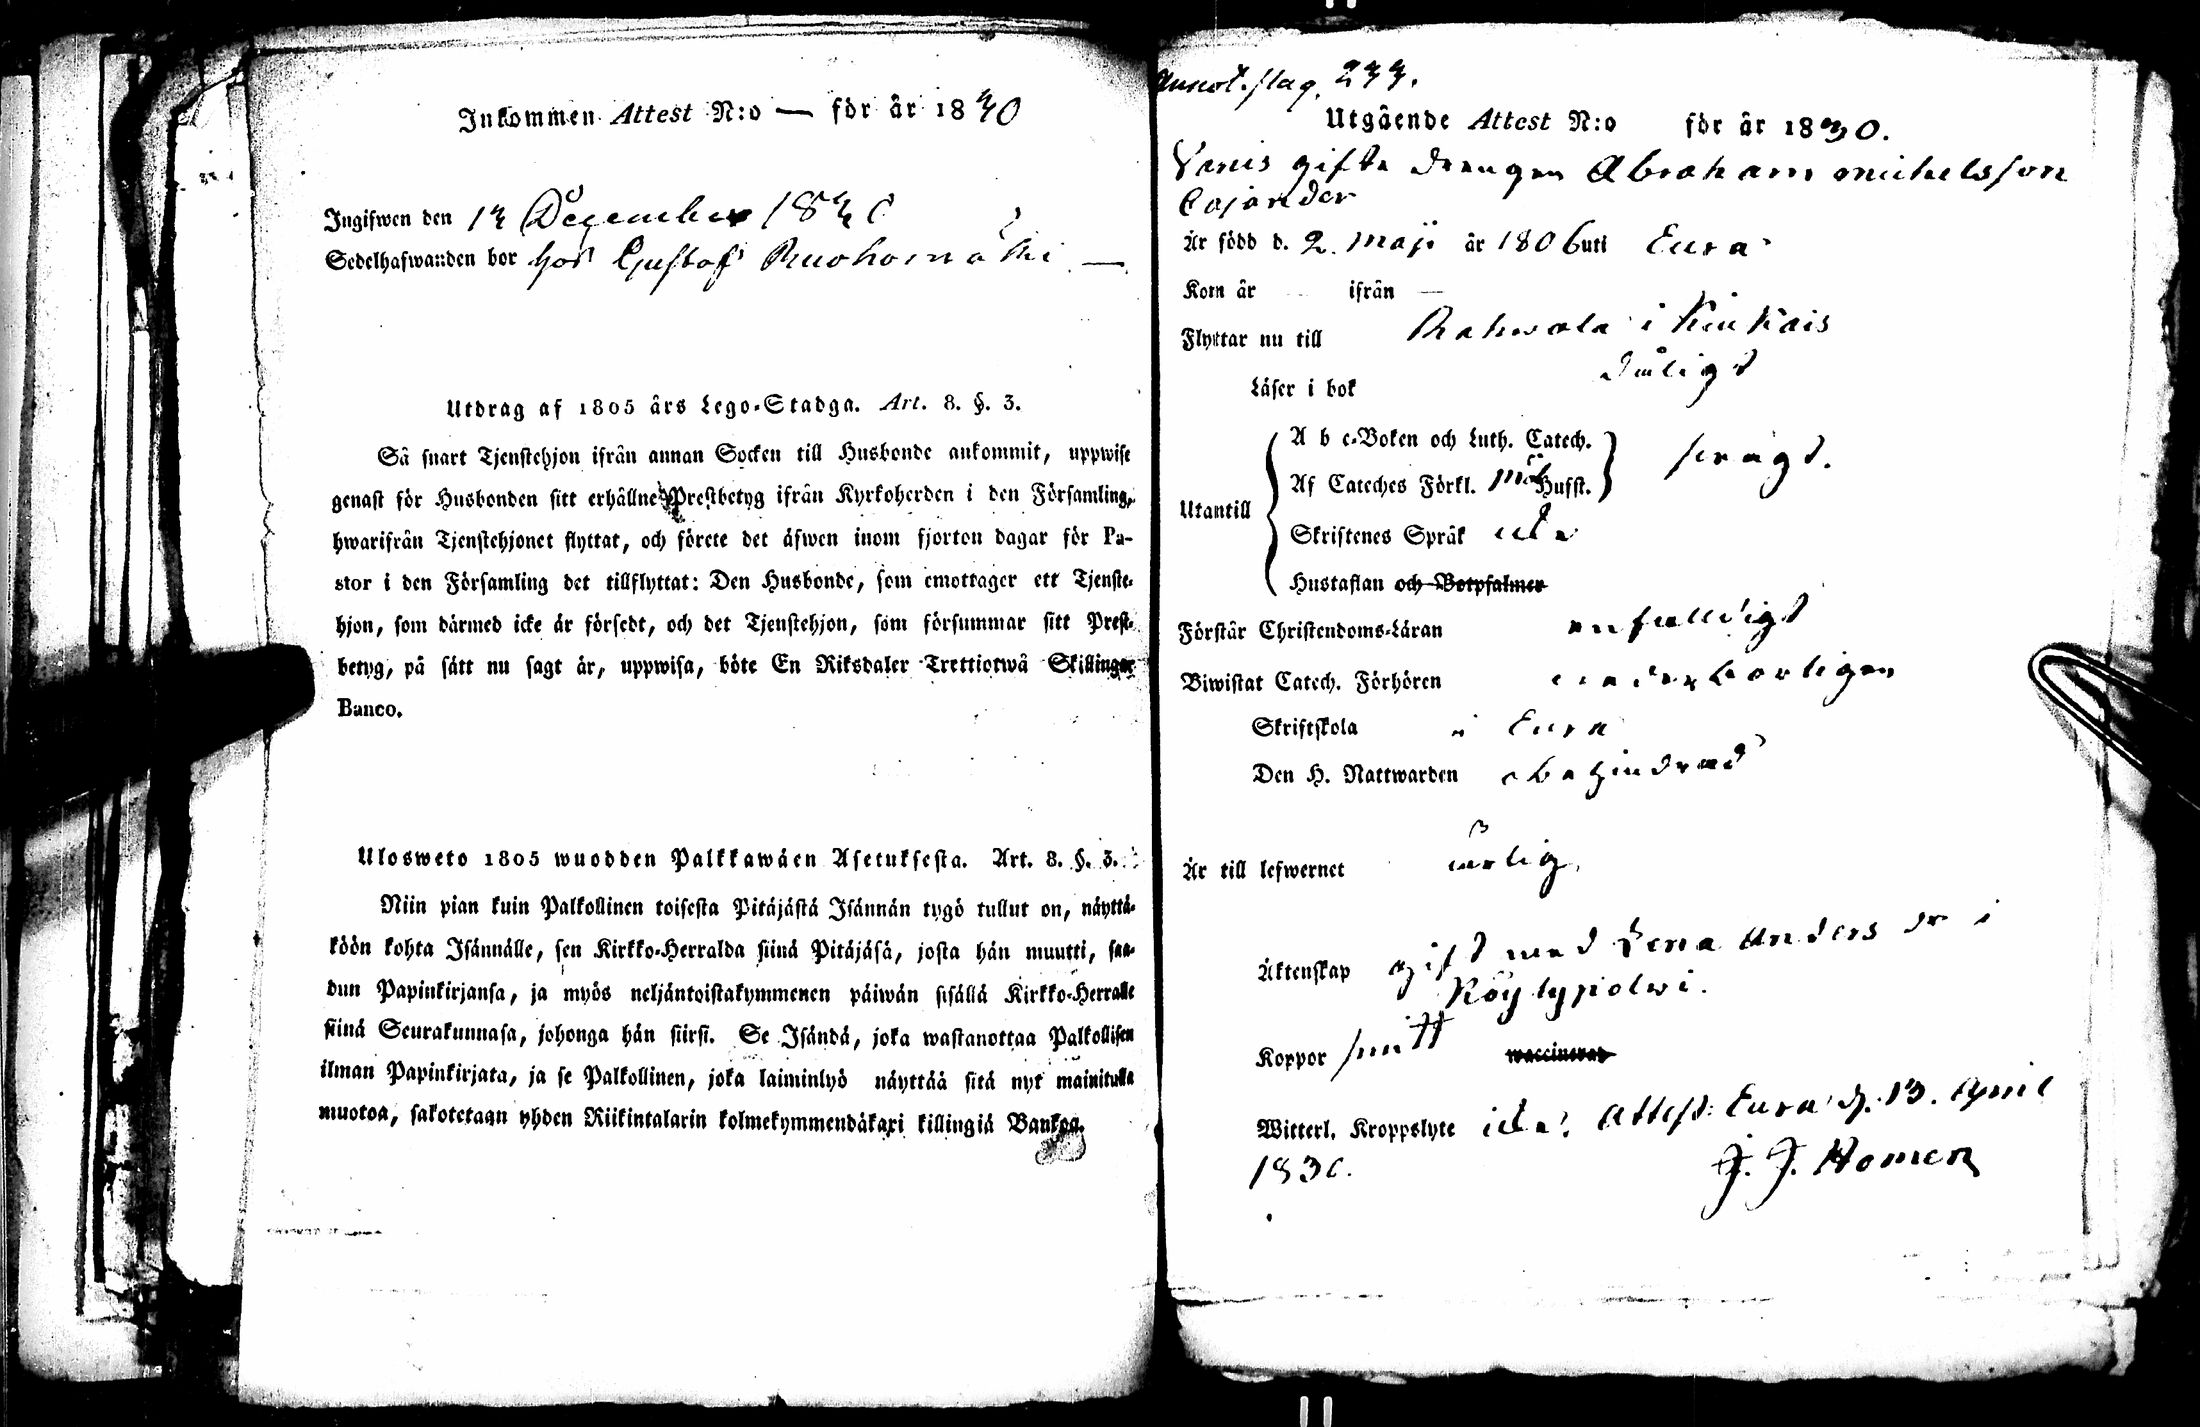 Inkommen Attest N:o — för år 1830
Ingifwen den 13 December 1830
Sedelhafwanden bor hos Gustaf Ruohomäki —
Utdrag af 1805 års Lego-Stadga. Art. 8. §. 3.
Så snart Tjenstehjon ifrån annan Socken till Husbonde ankommit, uppwise
genast för Husbonden sitt erhållne Prestbetyg ifrån Kyrkoherden i den Församling,
hwarifrån Tjenstehjonet flyttat, och förete det äfwen inom fjorton dagar för Pa-
stor i den Församling det tillflyttat: Den Husbonde, som emottager ett Tjenste-
hjon, som därmed icke är försedt, och det Tjenstehjon, som försummar sitt Prest-
betyg, på sätt nu sagt är, uppwisa, böte En Riksdaler Trettiotwå Skillingar
Banco.
Ulosweto 1805 wuodden Palkkawäen Asetuksesta. Art. 8. §. 3.
Niin pian kuin Palkollinen toisesta Pitäjästä Isännän tygö tullut on, näyttä-
köön kohta Isännälle, sen Kirkko-Herralda siinä Pitäjäsä, josta hän muutti, saa-
dun Papinkirjansa, ja myös neljäntoistakymmenen päiwän sisällä Kirkko-Herralle
siinä Seurakunnasa, johonga hän siirsi. Se Isändä, joka wastanottaa Palkollisen
ilman Papinkirjata, ja se Palkollinen, joka laiminlyö näyttää sitä nyt mainitulla
muotoa, sakotetaan yhden Riikintalarin kolmekymmendäkaxi killingiä Bankoa.
Annot. pag. 233.
Utgående Attest N:o för år 1830.
gifta drengen Abraham Michelsson
Cajander
Är född d. 2 Maji år 1806 uti Eura
Kom år — ifrån —
Flyttar nu till Rahwola i Kiukais
Läser i bok dåligt
A b c-Boken och Luth. Catech.
Af Cateches Förkl. med Husst. swagt.
Utantill
Skriftenes Språk icke
Hustaflan och Botpsalmer
Förstår Christendoms-Läran enfaldigt
Biwistat Catech. Förhören wederbörligen
Skriftskola i Eura
Den H. Nattwarden obehindrad
Är till lefwernet ärlig.
Äktenskap gift med Lena Anders dr i
Köylypolwi.
Koppor haft waccinerad
Witterl. Kroppslyte icke. Attest. Eura d. 13. April
1830.
J. J. Homen